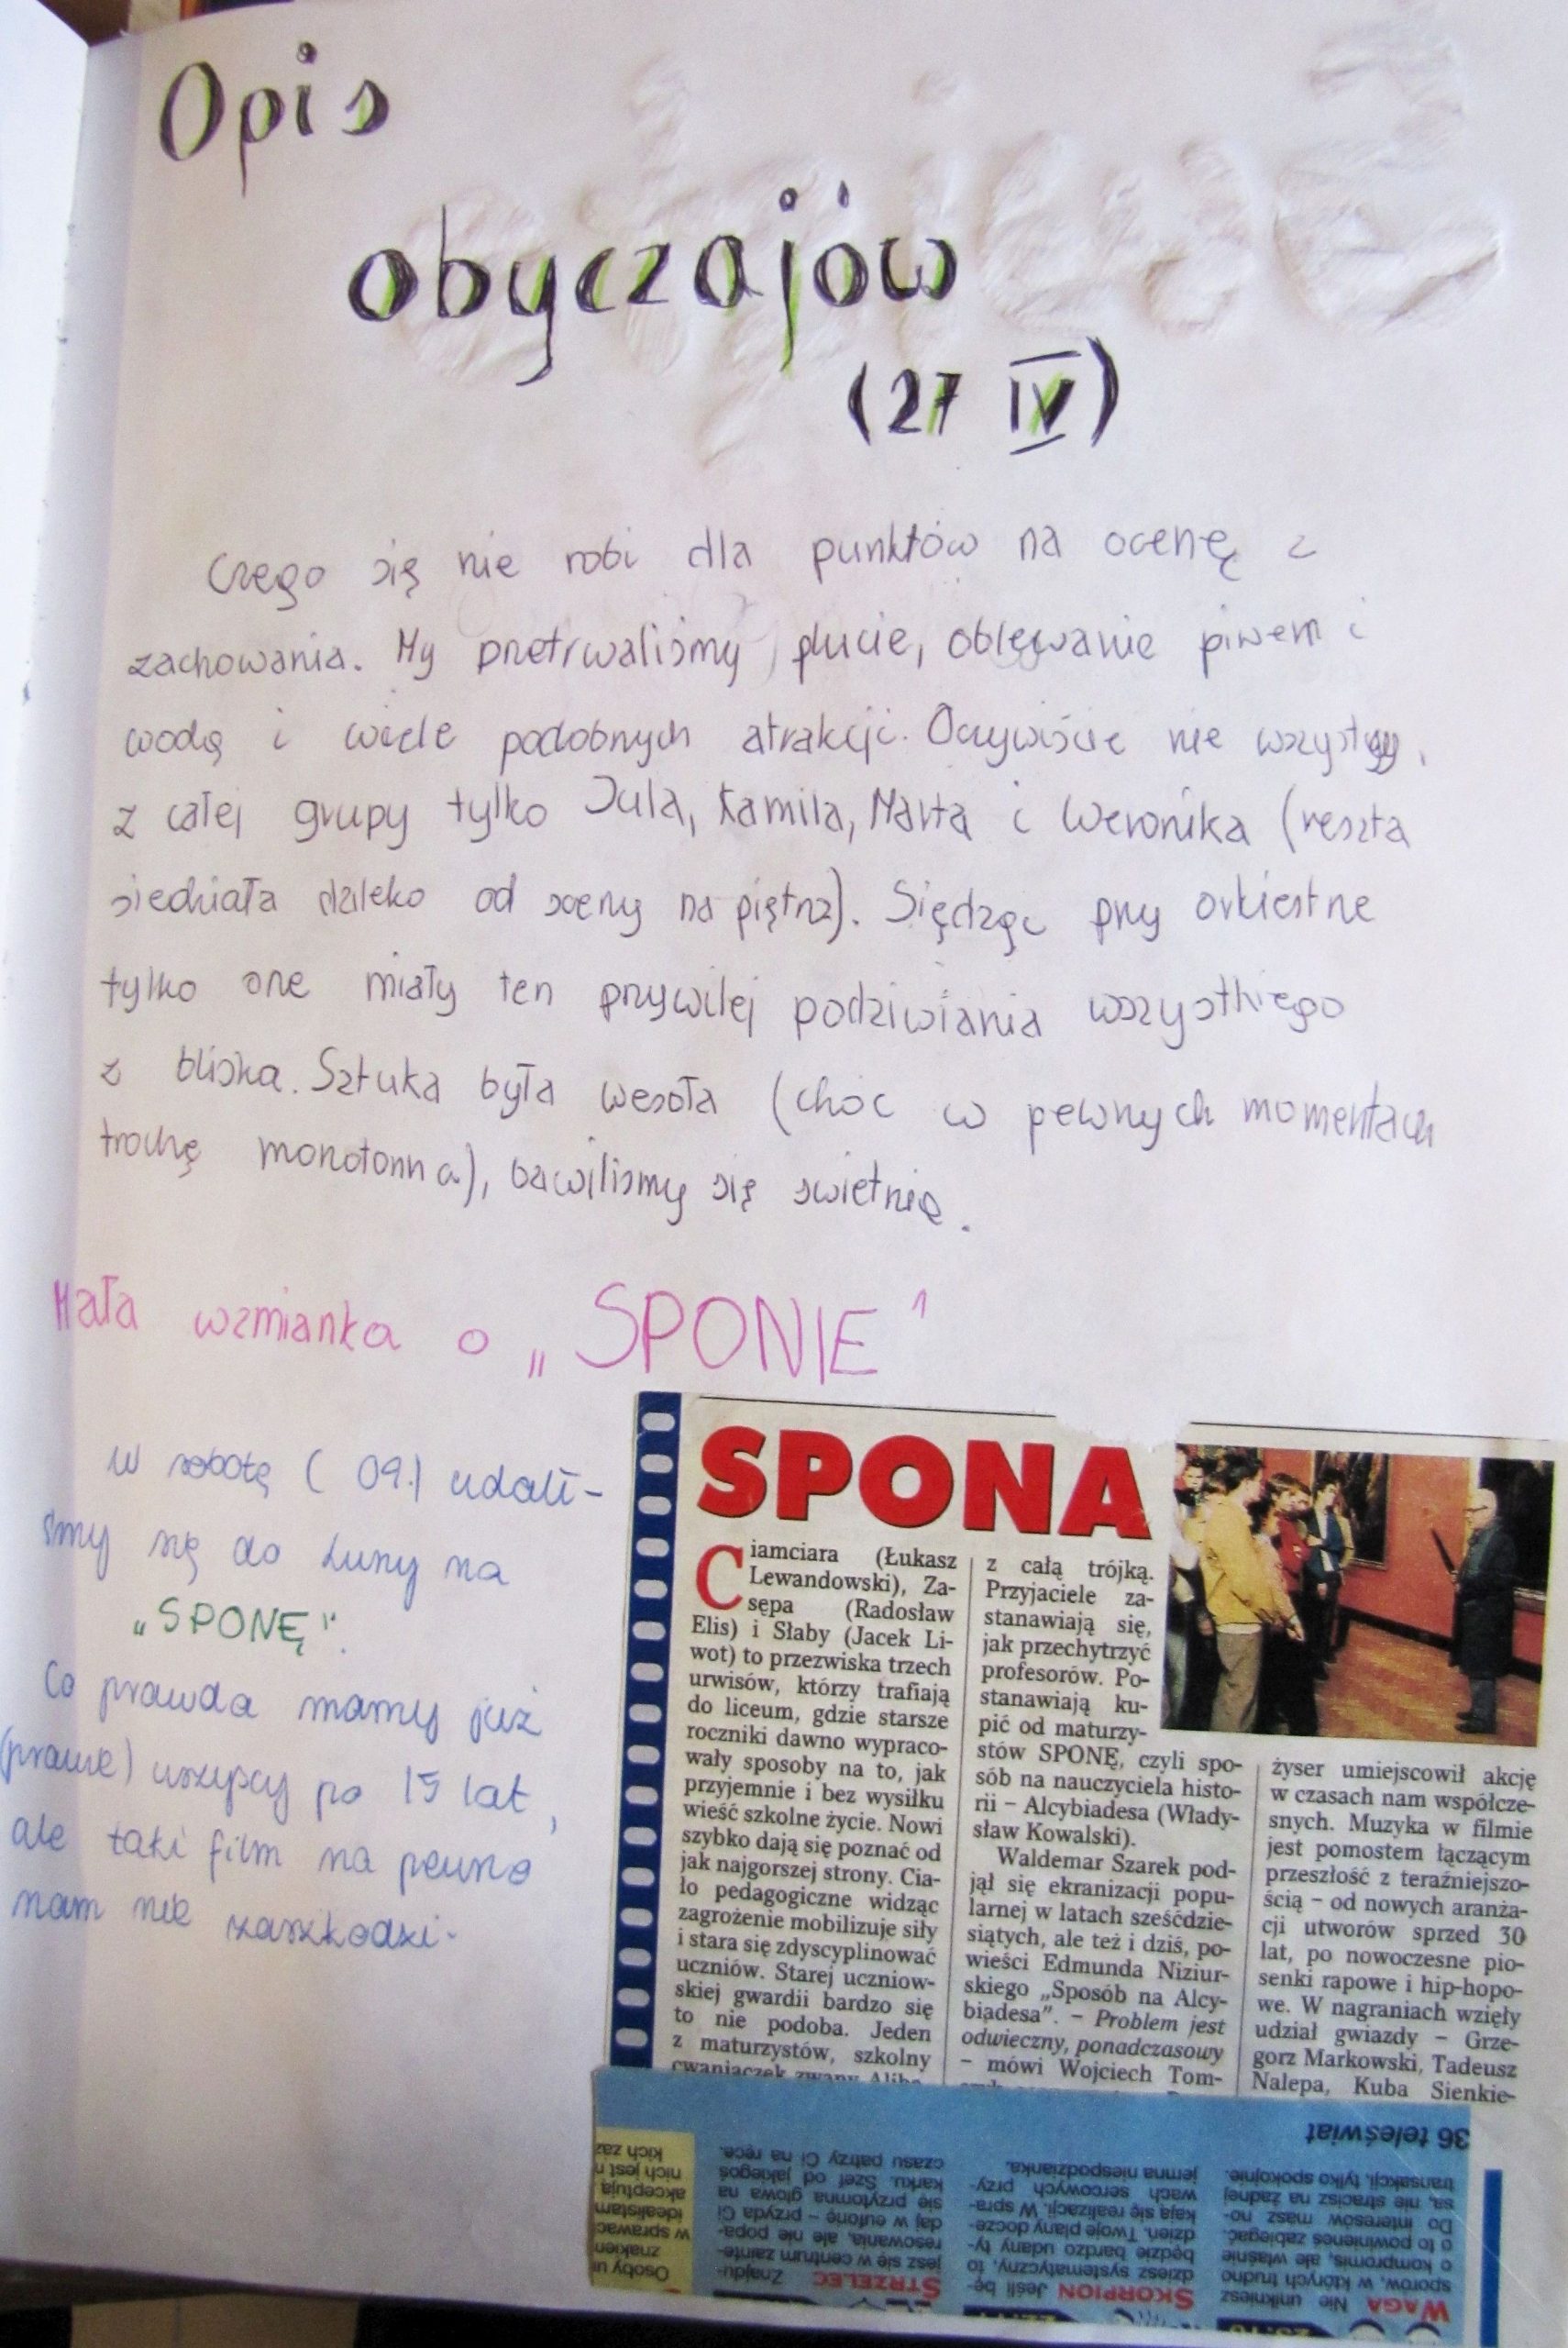 Opis
obyczajów
(27 IV)
Czego się nie robi dla punktów na ocenę z
zachowania. My przetrwaliśmy plucie, oblewanie piwem i
wodą i wiele podobnych atrakcji. Oczywiście nie wszyscy,
z całej grupy tylko Jula, Kamila, Marta i Weronika (reszta
siedziała daleko od sceny na piętrze). Siędząc przy orkiestrze
tylko one miały ten przywilej podziwiania wszystkiego
z bliska. Sztuka była wesoła (choć w pewnych momentach
trochę monotonna), bawiliśmy się świetnie.
Mała wzmianka o „SPONIE"
W sobotę (09.) udali-
śmy się do Luny na
„SPONĘ".
Co prawda mamy już
(prawie) wszyscy po 15 lat,
ale taki film na pewno
nam nie zaszkodzi.
SPONA
Ciamciara (Łukasz
Lewandowski), Za-
sępa (Radosław
Elis) i Słaby (Jacek Li-
wot) to przezwiska trzech
urwisów, którzy trafiają
do liceum, gdzie starsze
roczniki dawno wypraco-
wały sposoby na to, jak
przyjemnie i bez wysiłku
wieść szkolne życie. Nowi
szybko dają się poznać od
jak najgorszej strony. Cia-
ło pedagogiczne widząc
zagrożenie mobilizuje siły
i stara się zdyscyplinować
uczniów. Starej uczniow-
skiej gwardii bardzo się
to nie podoba. Jeden
z maturzystów, szkolny
cwaniaczek zwany Aliba-
z całą trójką.
Przyjaciele za-
stanawiają się,
jak przechytrzyć
profesorów. Po-
stanawiają ku-
pić od maturzy-
stów SPONĘ, czyli spo-
sób na nauczyciela histo-
rii – Alcybiadesa (Włady-
sław Kowalski).
Waldemar Szarek pod-
jął się ekranizacji popu-
larnej w latach sześćdzie-
siątych, ale też i dziś, po-
wieści Edmunda Niziur-
skiego „Sposób na Alcy-
biadesa". – Problem jest
odwieczny, ponadczasowy
– mówi Wojciech Tom-
żyser umiejscowił akcję
w czasach nam współcze-
snych. Muzyka w filmie
jest pomostem łączącym
przeszłość z teraźniejszo-
ścią – od nowych aranża-
cji utworów sprzed 30
lat, po nowoczesne pio-
senki rapowe i hip-hopo-
we. W nagraniach wzięły
udział gwiazdy – Grze-
gorz Markowski, Tadeusz
Nalepa, Kuba Sienkie-
WAGA Nie unikniesz
sporów, w których trudno
o kompromis, ale właśnie
o to powinieneś zabiegać.
Do interesów masz no-
sa, nie stracisz na żadnej
transakcji, tylko spokojnie.
SKORPION Jeśli bę-
dziesz systematyczny, to
będzie bardzo udany ty-
dzień. Twoje plany docze-
kają się realizacji. W spra-
wach sercowych przy-
jemna niespodzianka.
STRZELEC Znajdu-
jesz się w centrum zainte-
resowania, ale nie popa-
daj w euforię – przyda Ci
się przytomna głowa na
karku. Szef od jakiegoś
czasu patrzy Ci na ręce.
Osoby
znakiem
w sprawac
idealistam
akceptują
nich jest
kich zaz
36 teleświat